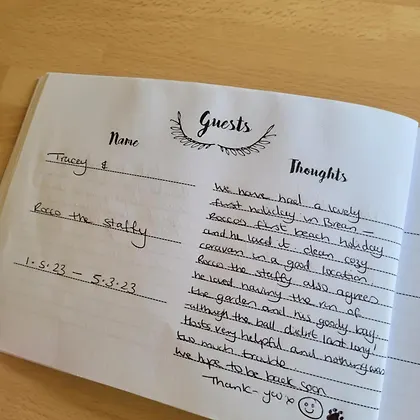 Guests
Name
Thoughts
Tracey &
Rocco the staffy
1.5.23 - 5.3.23
We have had a lovely
first holiday in Brean -
Roccos first beach holiday
and he loved it. clean cozy
caravan in a good location.
Rocco the staffy also agrees
he loved having the run of
the garden and his goody bag
-although the ball didn't last long!
Hosts very helpful and nothing was
too much trouble.
We hope to be back soon
Thank-you x